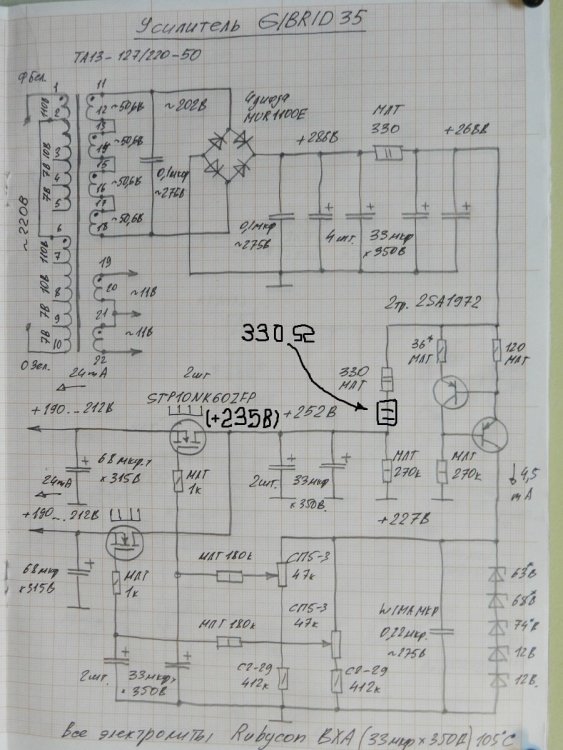 Усилитель GIBRID 35
ТА13-127/220-50
Ф бел.
1 2 3 4 5 6 7 8 9 10
110В
10В
7В
7В
110В
10В
7В
7В
~220В
О Зел.
11
12 ~50,6В
13
14 ~50,6В
15
16 ~50,6В
17
18 ~50,6В
19
20 ~11В
21
~11В
22
~202В
0,1мкф
~275В
4 диода
MUR1100E
+286В
МЛТ
330
+268В
0,1мкф
~275В
4 шт.
33мкф
×350В
2тр. 2SA1972
330Ω
330
МЛТ
36*
МЛТ
120
МЛТ
24mA
2шт
STP10NK60ZFP
+190...212В
(+235В)
+252В
68мкф.
×315В
МЛТ
1к
2шт.
33мкф
×350В.
МЛТ
270к
МЛТ
270к
4,5
mA
24mA
+190...212В
+227В
68мкф
×315В
МЛТ
1к
МЛТ 180к
СП5-3
47к
МЛТ 180к
СП5-3
47к
WIMA МКР
0,22мкф.
~275В
63*В
68*В
74*В
12В
12В.
2шт.
33мкф
×350В
С2-29
412к
С2-29
412к
Все электролиты Rubycon BXA (33мкф×350В) 105°С